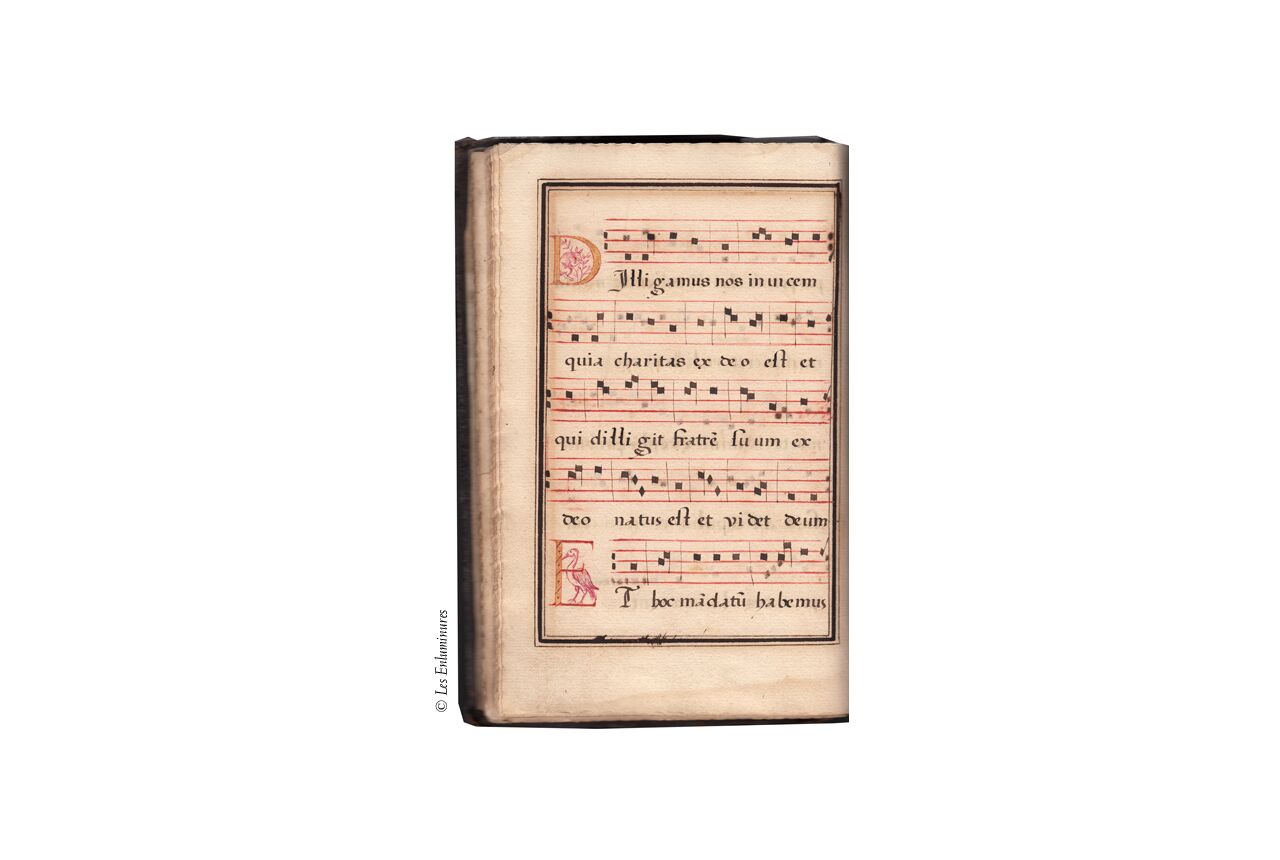 Dilligamus nos in uicem
quia charitas ex deo est et
qui dilligit fratrē suum ex
deo natus est et videt deum
ET hoc mādatū habemus
© Les Enluminures